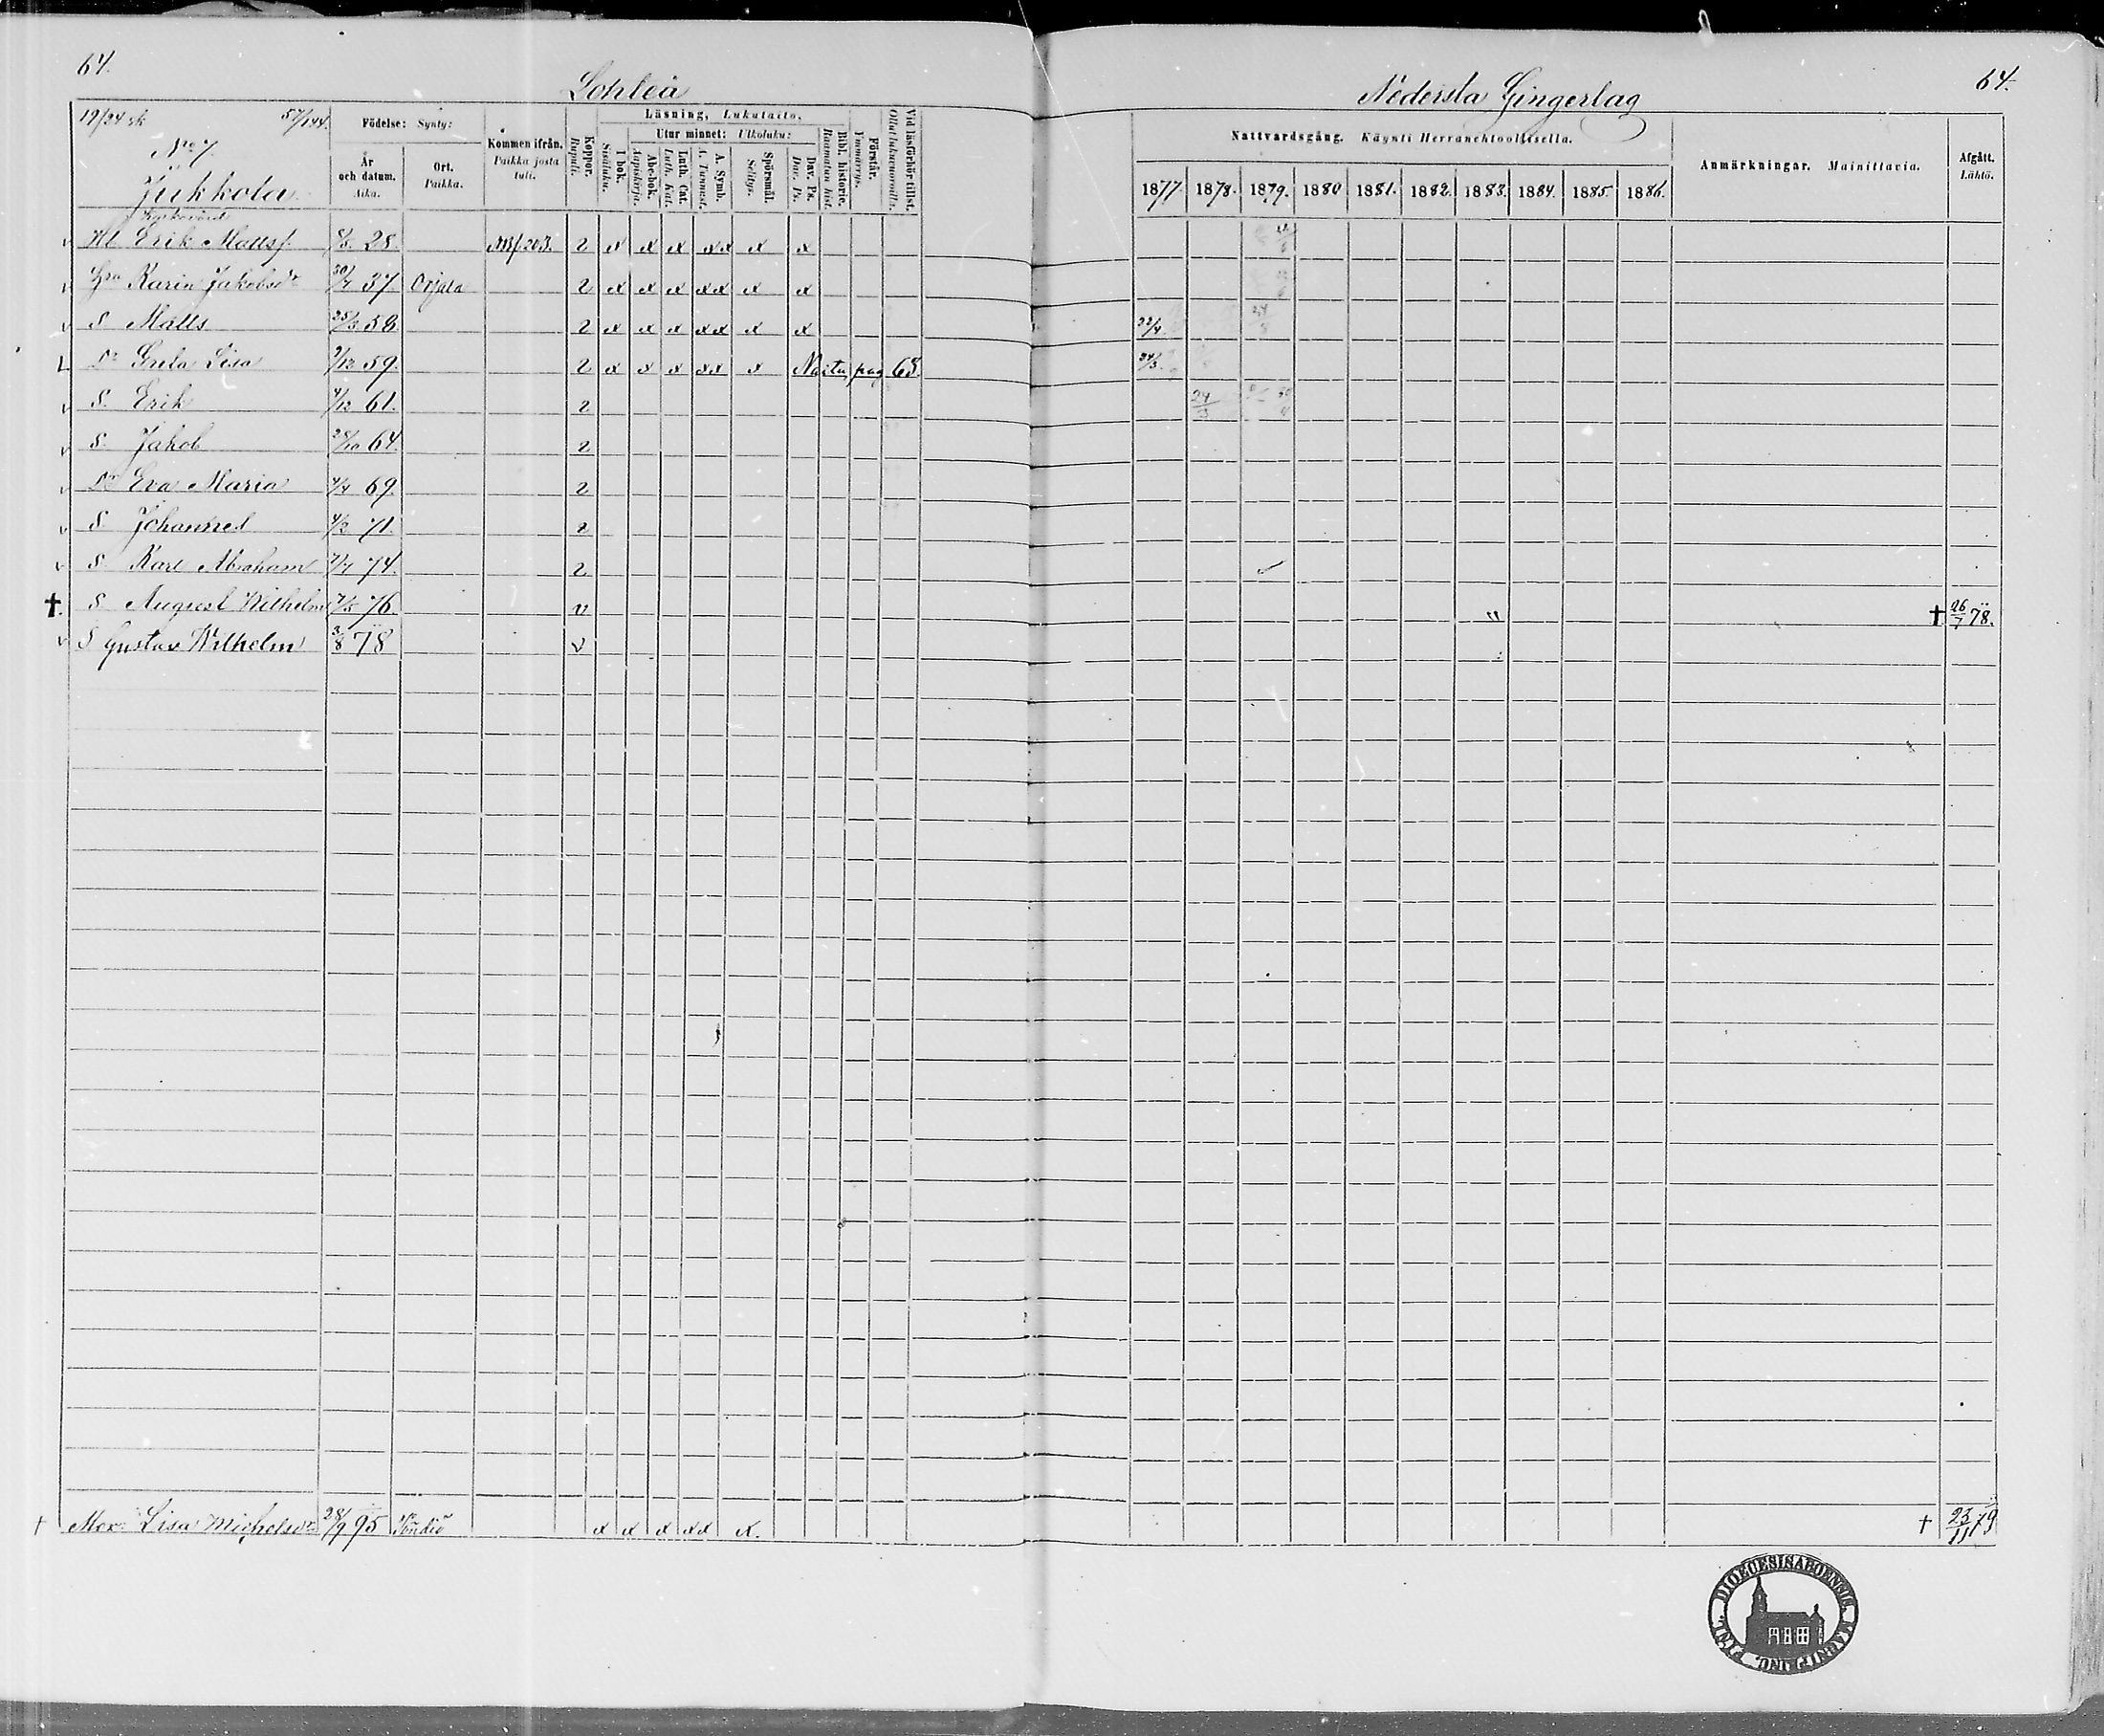 64.
Lohteå
Nedersta Gingerlag
64.
19/94 rk
57/144.
Nro 7.
Jukkola
Födelse: Synty:
År och datum. Aika.
Ort. Paikka.
Kommen ifrån. Paikka josta tuli.
Koppor. Rupuli.
Läsning, Lukutaito.
I bok. Sisäluku.
Utur minnet: Ulkoluku:
Abc-bok. Aapiskirja.
Luth. Cat. Luth. Kat.
A. Symb. A. Tunnust.
Spörsmål. Selitys.
Dav. Ps. Dav. Ps.
Bibl. historie. Raamatun hist.
Förstår. Ymmärrys.
Vid läsförhör tillst. Ollut lukuvuorolla.
Nattvardsgång. Käynti Herranehtoollisella.
1877. 1878. 1879. 1880 1881. 1882. 1883. 1884. 1885. 1886.
Anmärkningar. Mainittavia.
Afgått. Lähtö.
Erik Mattsf. 28. 203. 2 x x x xx x x
Hu Karin Jakobsdr 30/7 37. Orjala 2 x x x xx x x
S Matts 25/3 58 2 x x x xx x x 22/4.
Dr Greta Lisa 9/12 59. 2 x x x xx x pag 68. 24/3.
S. Erik 7/12 61. 2 24/3
S. Jakob 28/10 64. 2
Dr Eva Maria 7/4 69. 2
S Johannes 4/2 71. 2
S Karl Abraham 7/7 74. 2
† S August Wilhelm 7/5 76. v † 26/7 78.
S Gustav Wilhelm 3/8 78 v
† Mor. Lisa Michelsdr 28/9 95 x x x xx x. † 23/11 79
DIOECESIS ABOENSIS